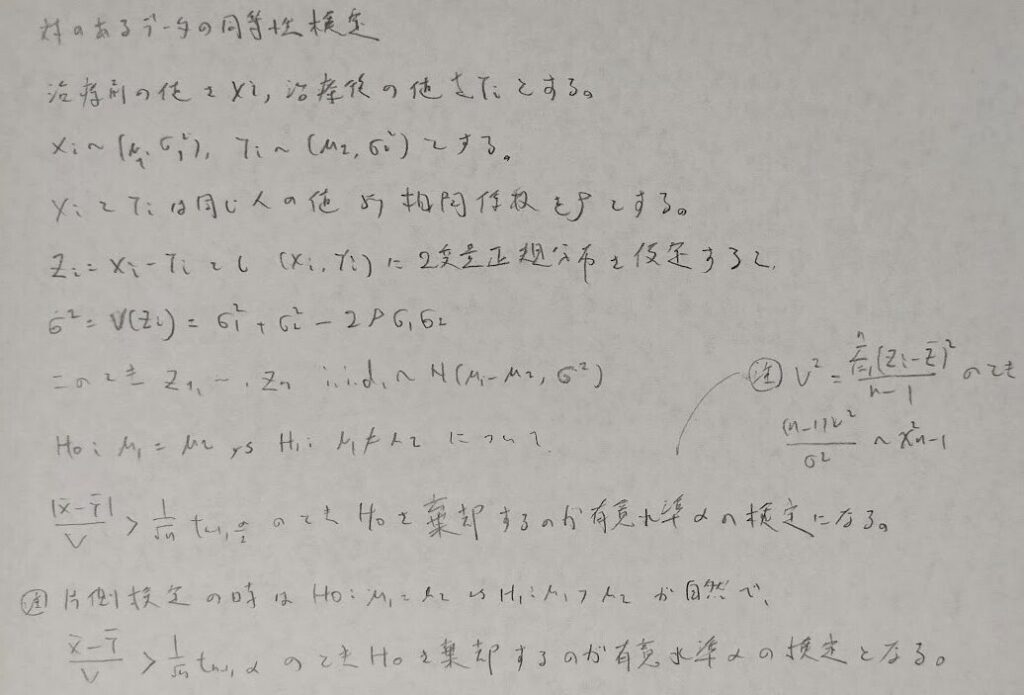 対のあるデータの同等性検定
治療前の値をXi, 治療後の値をYiとする。
Xi ~ (μ1, σ1²), Yi ~ (μ2, σ2²) とする。
XiとYiは同じ人の値より相関係数をρとする。
Zi = Xi - Yi とし (Xi, Yi) に2変量正規分布を仮定すると、
σ² = V(Zi) = σ1² + σ2² - 2ρσ1σ2
このとき Z1, …, Zn i.i.d. ~ N(μ1-μ2, σ²)
㊟ V² = Σ_{i=1}^{n} (Zi - Z̄)² / (n-1) のとき
(n-1)V² / σ² ~ χ²n-1
H0: μ1 = μ2 vs H1: μ1 ≠ μ2 について
|X̄-Ȳ| / V > 1/√n t_{n-1, α/2} のとき H0 を棄却するのが有意水準αの検定になる。
㊟ 片側検定の時は H0: μ1 = μ2 vs H1: μ1 > μ2 が自然で、
X̄-Ȳ / V > 1/√n t_{n-1, α} のとき H0 を棄却するのが有意水準αの検定となる。